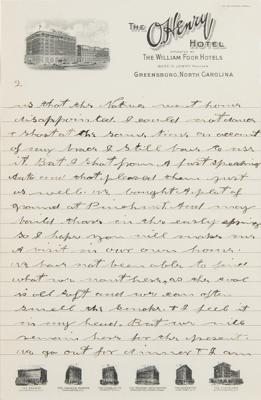 THE O.Henry HOTEL
OPERATED BY
THE WILLIAM FOOR HOTELS
GREENSBORO, NORTH CAROLINA
2.
us that the Natives went home
disappointed. I could not dance
& shoot at the same time on account
of my brace I still have to use
it. But I shot from a fast speeding
Auto and that pleased them just
as well. we bought a plot of
ground at Pinehurst. And may
build there in the early spring
So I hope you will make us
A visit in our own home.
We have not been able to find
what we want here, as the coal
is old soft and we can often
smell the smoke. & I feel it
in my head. But we will
remain here for the present.
We go out for dinner & I am